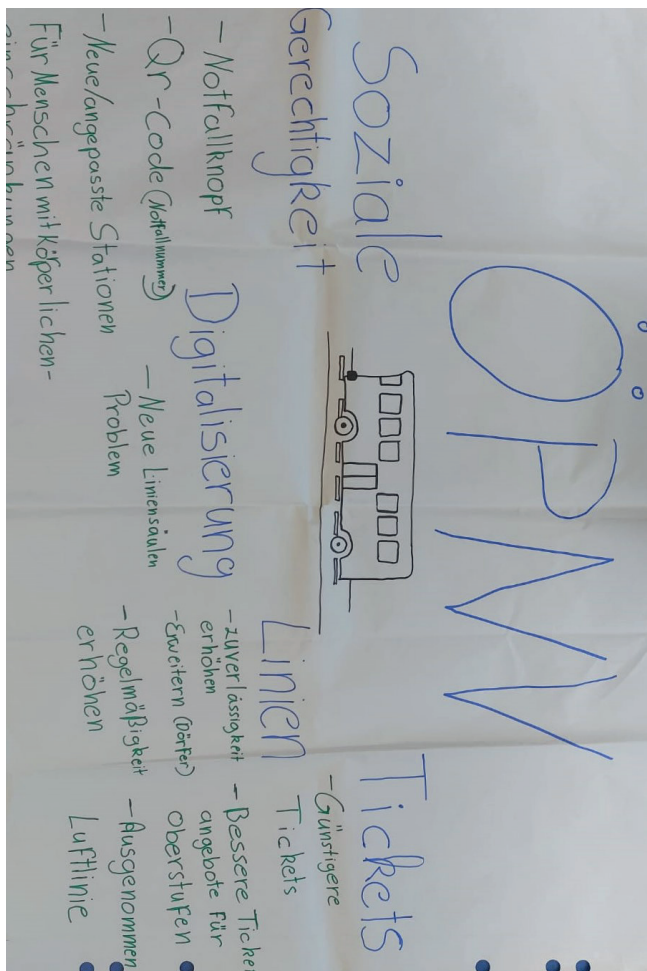 ÖPNV
Soziale
Gerechtigkeit
- Notfallknopf
- Qr-Code (Notfallnummer)
- Neue/angepasste Stationen
Für Menschen mit körperlichen-
einschränkungen
Digitalisierung
- Neue Liniensäulen
Problem
Linien
- zuverlässigkeit
erhöhen
- Erweitern (Dörfer)
- Regelmäßigkeit
erhöhen
Tickets
- Günstigere
Tickets
- Bessere Ticke
angebote für
oberstufen
- Ausgenommen
Luftlinie